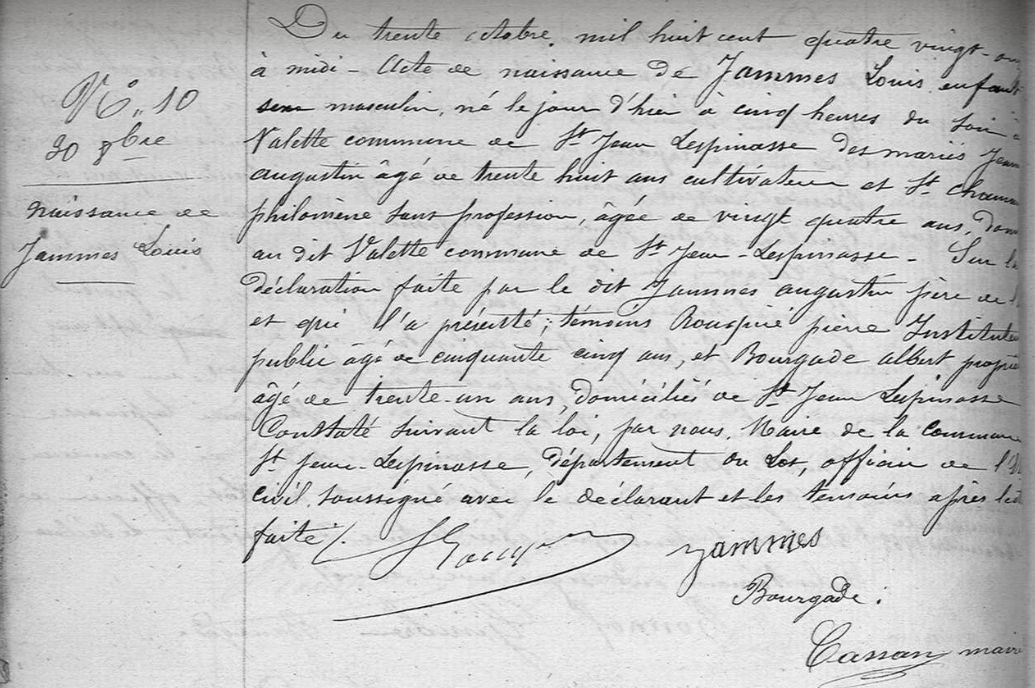 N° 10
30 8bre
naissance de
Jammes Louis
Du trente octobre, mil huit cent quatre vingt-
à midi - Acte de naissance de Jammes Louis enfant
masculin, né le jour d'hier à cinq heures du soir à
Valette commune de St Jean Lespinasse des mariés
augustin âgé de trente huit ans cultivateur et St
philomène sans profession, âgée de vingt quatre ans,
au dit Valette commune de St Jean-Lespinasse - Sur la
déclaration faite par le dit Jammes augustin père de
et qui l'a présenté; témoins pierre
public âgé de cinquante cinq ans, et Bourgade albert
âgé de trente-un ans, domiciliés de St Jean Lespinasse
Constaté suivant la loi, par nous, Maire de la commune
St Jean-Lespinasse, département du Lot, officier de
civil soussigné avec le déclarant et les temoins après
faite.
Jammes
Bourgade.
Cassan maire